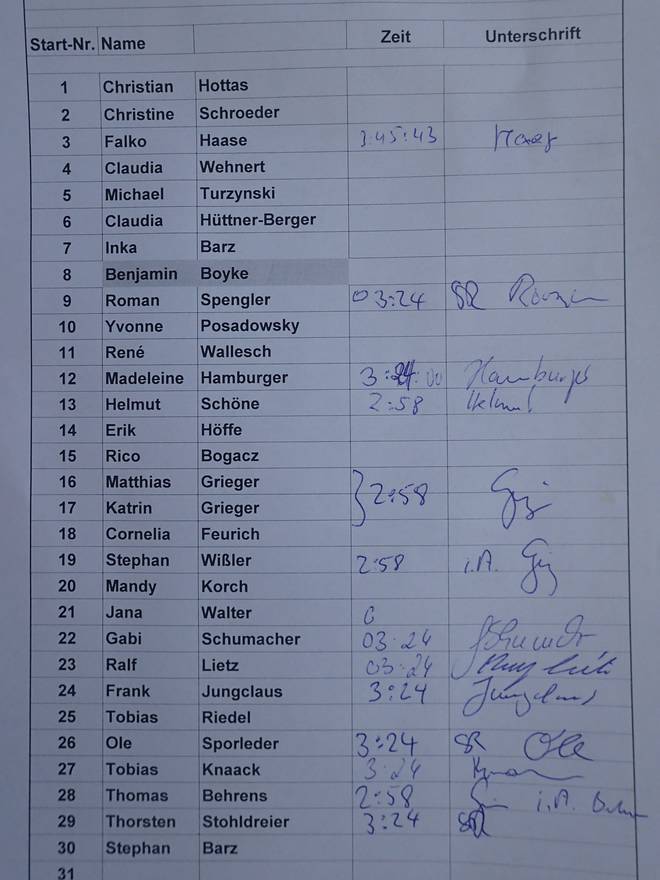 Start-Nr. Name Zeit Unterschrift
1 Christian Hottas
2 Christine Schroeder
3 Falko Haase 3:45:43
4 Claudia Wehnert
5 Michael Turzynski
6 Claudia Hüttner-Berger
7 Inka Barz
8 Benjamin Boyke
9 Roman Spengler 03:24 SR Roman
10 Yvonne Posadowsky
11 René Wallesch
12 Madeleine Hamburger 3:24:00 Hamburger
13 Helmut Schöne 2:58 Helmut
14 Erik Höffe
15 Rico Bogacz
16 Matthias Grieger 2:58
17 Katrin Grieger
18 Cornelia Feurich
19 Stephan Wißler 2:58 i.A.
20 Mandy Korch
21 Jana Walter
22 Gabi Schumacher 03:24
23 Ralf Lietz 03:24
24 Frank Jungclaus 3:24 Jungclaus
25 Tobias Riedel
26 Ole Sporleder 3:24 SR Ole
27 Tobias Knaack 3:24
28 Thomas Behrens 2:58 i.A.
29 Thorsten Stohldreier 3:24 SR
30 Stephan Barz
31